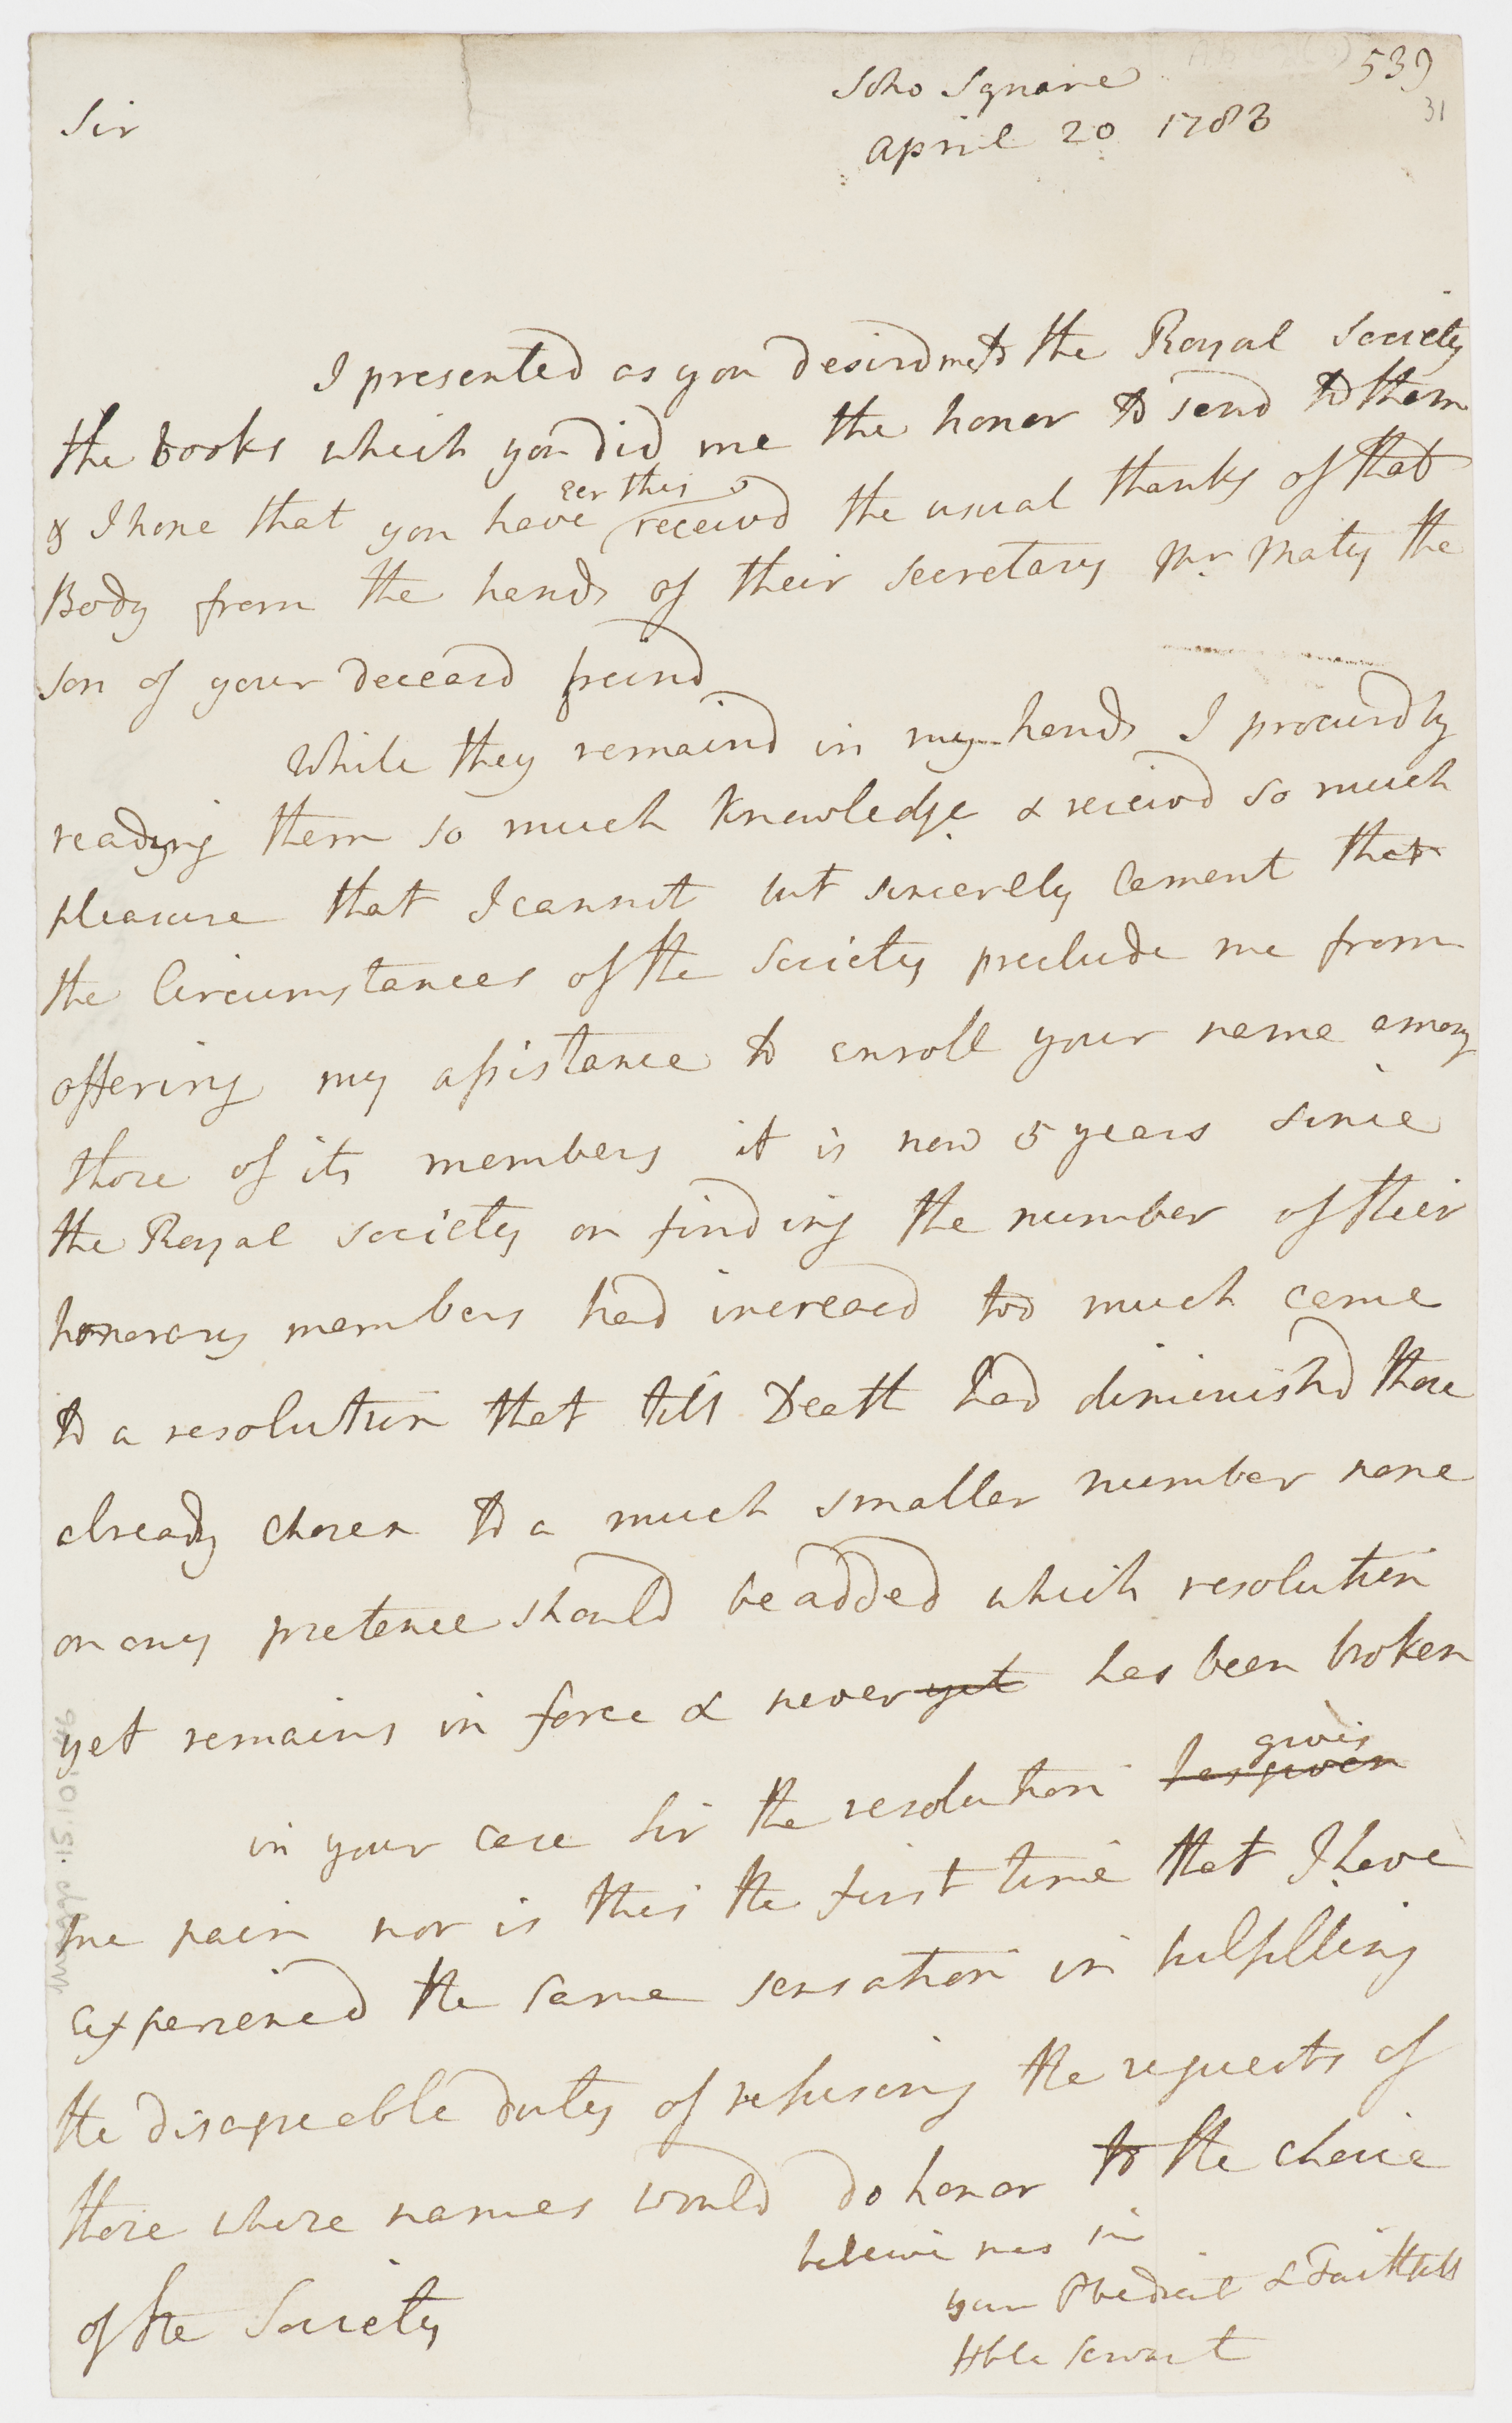 539
31
Soho Square
April 20 1783
Sir
I presented as you desird me to the Royal Society
the books which you did me the honor to send to them
& I hope that you have eer this receivd the usual thanks of that
Body from the hands of their secretary Mr. Maty the
son of your deceasd freind
While they remaind in my hands I procurd by
reading them so much knowledge & receivd so much
pleasure that I cannot but sincerely lament that
the Circumstances of the Society preclude me from
offering my assistance to enroll your name among
those of its members it is now 5 years since
the Royal Society on finding the number of their
honorary members had increasd too much came
to a resolution that till Death had diminishd those
already chosen to a much smaller number none
on any pretence should be added which resolution
yet remains in force & never yet has been broken
in your case Sir the resolution has given gives
me pain nor is this the first time that I have
experiencd the same sensation in fulfilling
the disagreable duty of refusing the requests of
those whose names would do honor to the choice
of the Society
beleive me Sir
your Obedient & Faithfull
Hble Servant